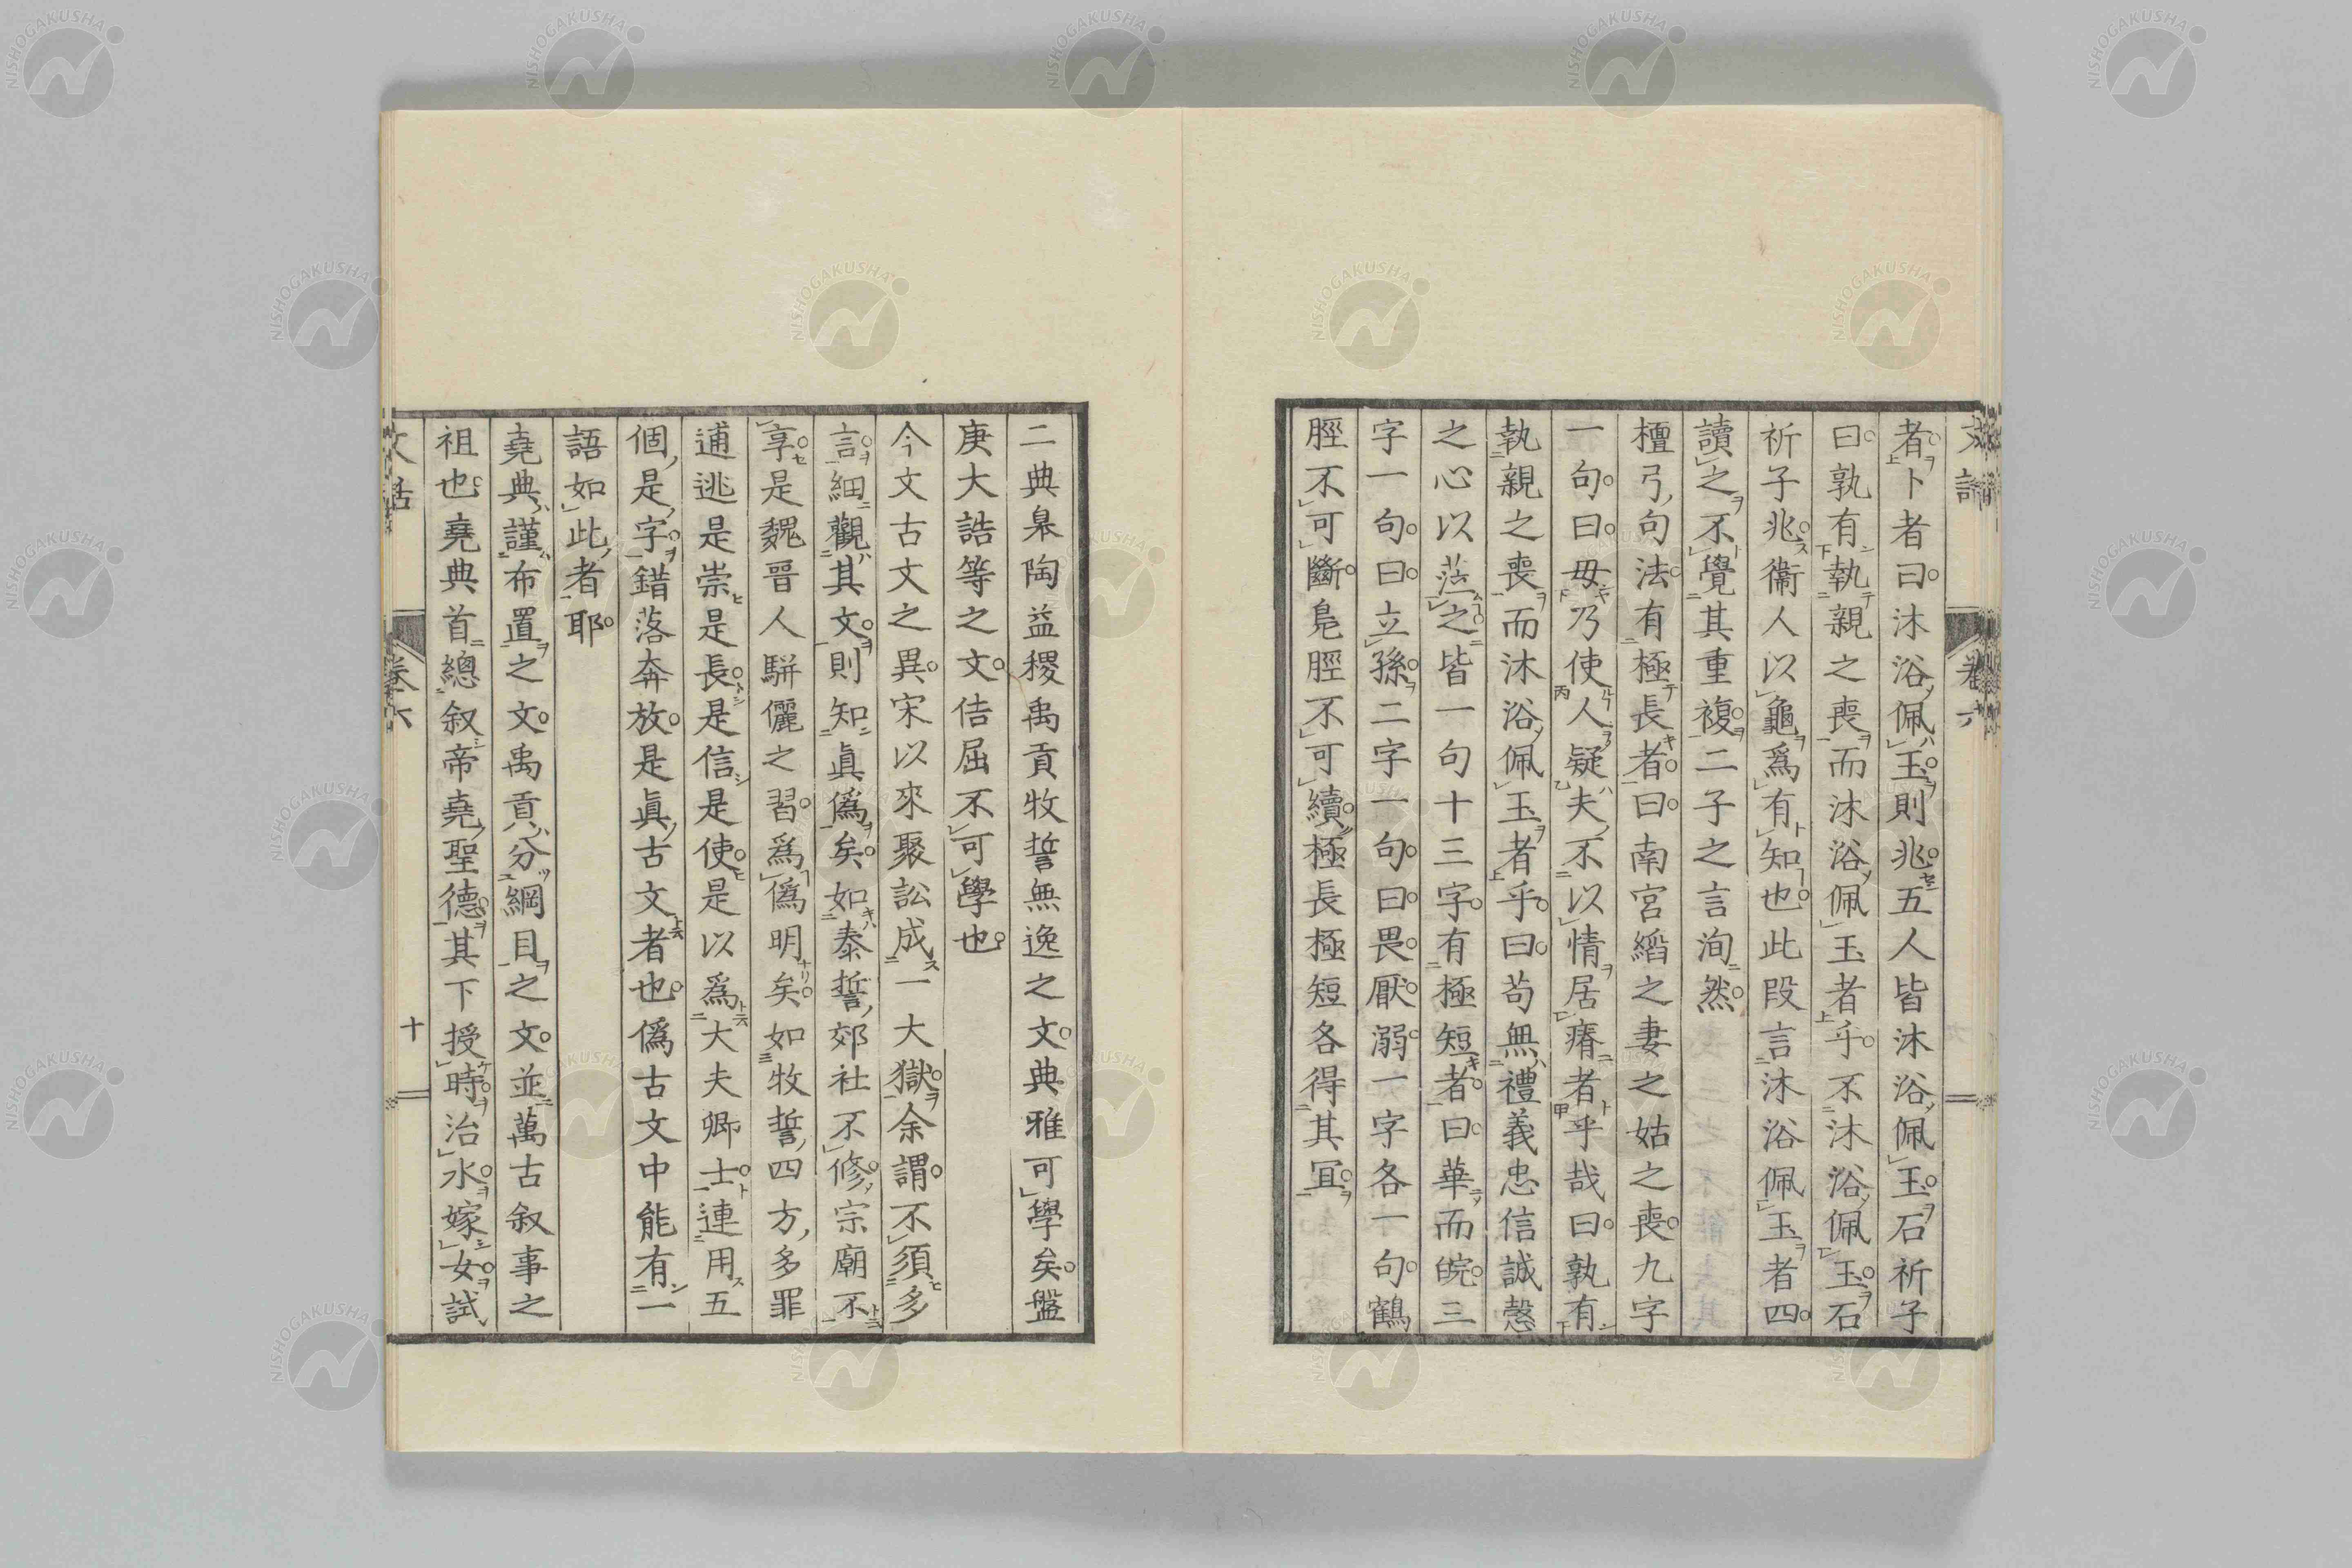 者卜者曰沐浴佩玉則兆五人皆沐浴佩玉石祈子
曰孰有執親之喪而沐浴佩玉者乎不沐浴佩玉石
祈子兆衞人以龜爲有知也此段言沐浴佩玉者四
讀之不覺其重複二子之言洵然
檀弓句法有極長者曰南宮縚之妻之姑之喪九字
一句曰毋乃使人疑夫不以情居瘠者乎哉曰孰有
執親之喪而沐浴佩玉者乎曰苟無禮義忠信誠慤
之心以涖之皆一句十三字有極短者曰華而睆三
字一句曰立孫二字一句曰畏厭溺一字各一句鶴
脛不可斷鳧脛不可續極長極短各得其宜
二典皋陶益稷禹貢牧誓無逸之文典雅可學矣盤
庚大誥等之文佶屈不可學也
今文古文之異宋以來聚訟成一大獄余謂不須多
言細觀其文則知眞僞矣如泰誓郊社不修宗廟不
享是魏晉人駢儷之習爲僞明矣如牧誓四方多罪
逋逃是崇是長是信是使是以爲大夫卿士連用五
個是字錯落奔放是眞古文者也僞古文中能有一
語如此者耶
堯典謹布置之文禹貢分綱目之文並萬古叙事之
祖也堯典首總叙帝堯聖德其下授時治水嫁女試
文話 卷六 十
NISHOGAKUSHA